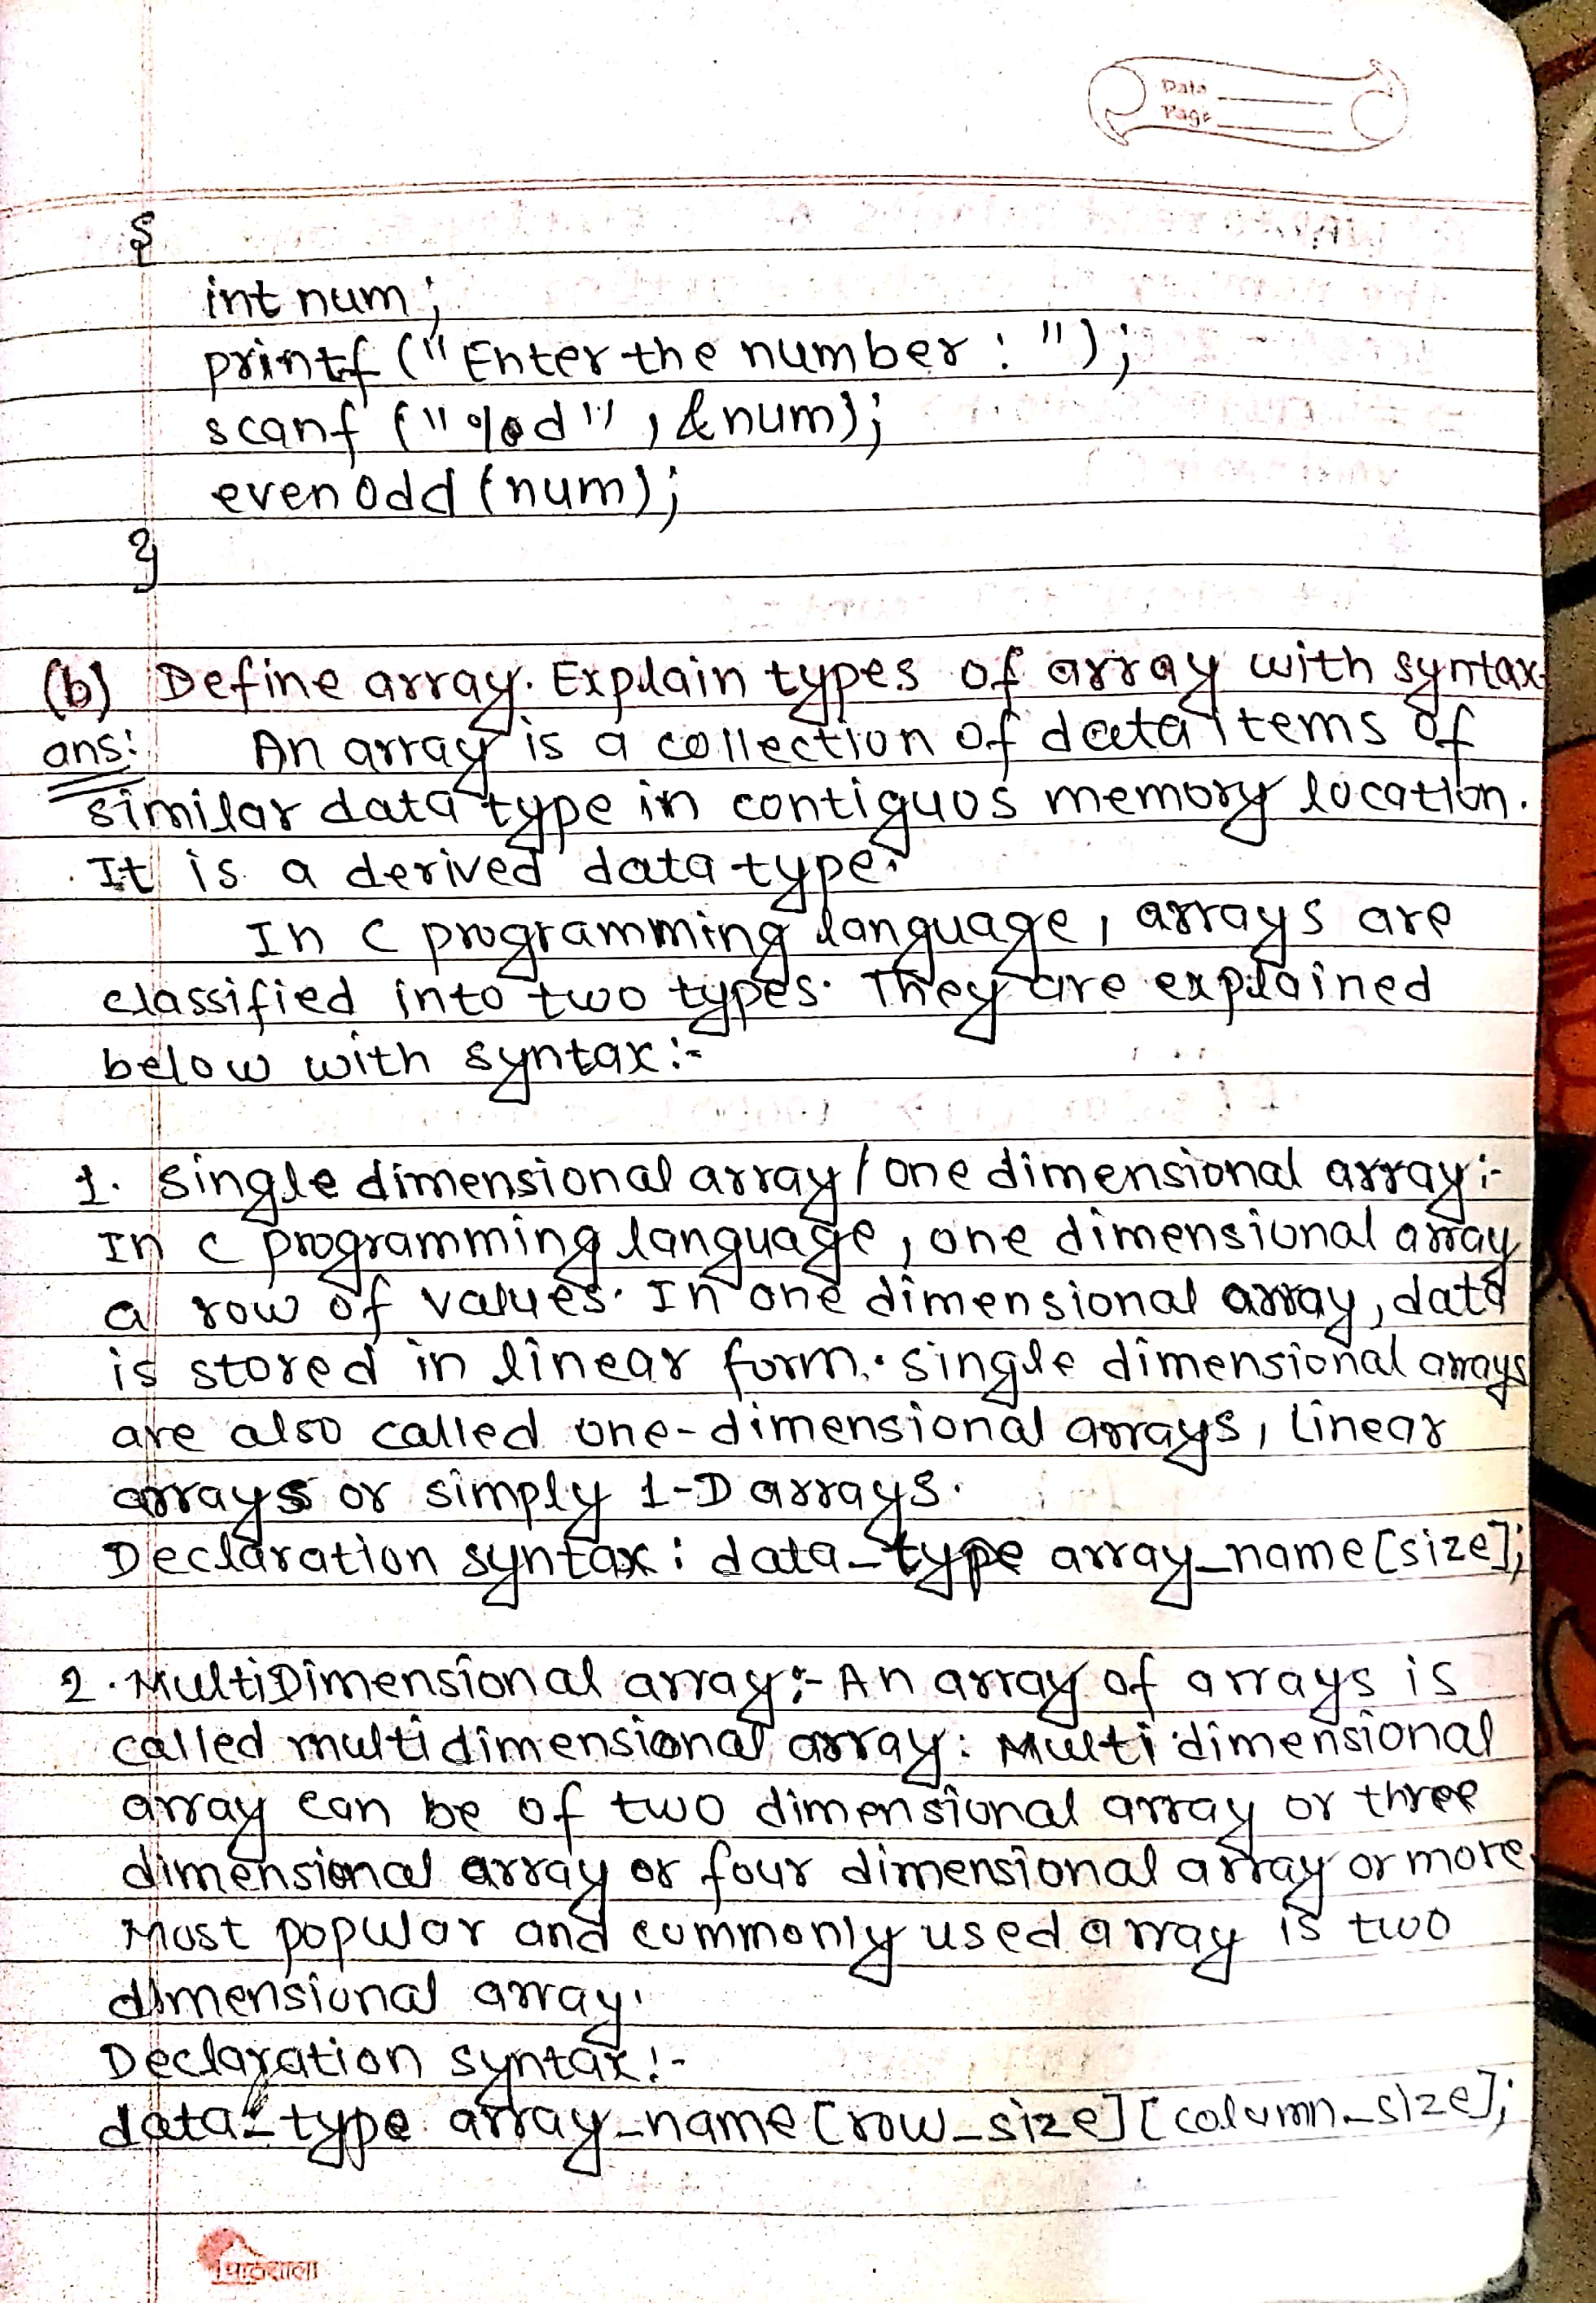 Date
Page
{
int num;
printf ("Enter the number : ");
scanf ("%d", &num);
evenodd (num);
}
(b) Define array. Explain types of array with syntax.
ans: An array is a collection of data items of
similar data type in contiguos memory location.
It is a derived data type.
In C programming language, arrays are
classified into two types. They are explained
below with syntax:-
1. Single dimensional array / one dimensional array:-
In C programming language, one dimensional array
a row of values. In one dimensional array, data
is stored in linear form. Single dimensional arrays
are also called one-dimensional arrays, Linear
arrays or simply 1-D arrays.
Declaration syntax: data_type array_name[size];
2. MultiDimensional array:- An array of arrays is
called multidimensional array. Multi dimensional
array can be of two dimensional array or three
dimensional array or four dimensional array or more.
Most popular and commonly used array is two
dimensional array.
Declaration syntax:-
data_type array_name [row_size] [column_size];
पाठशाला